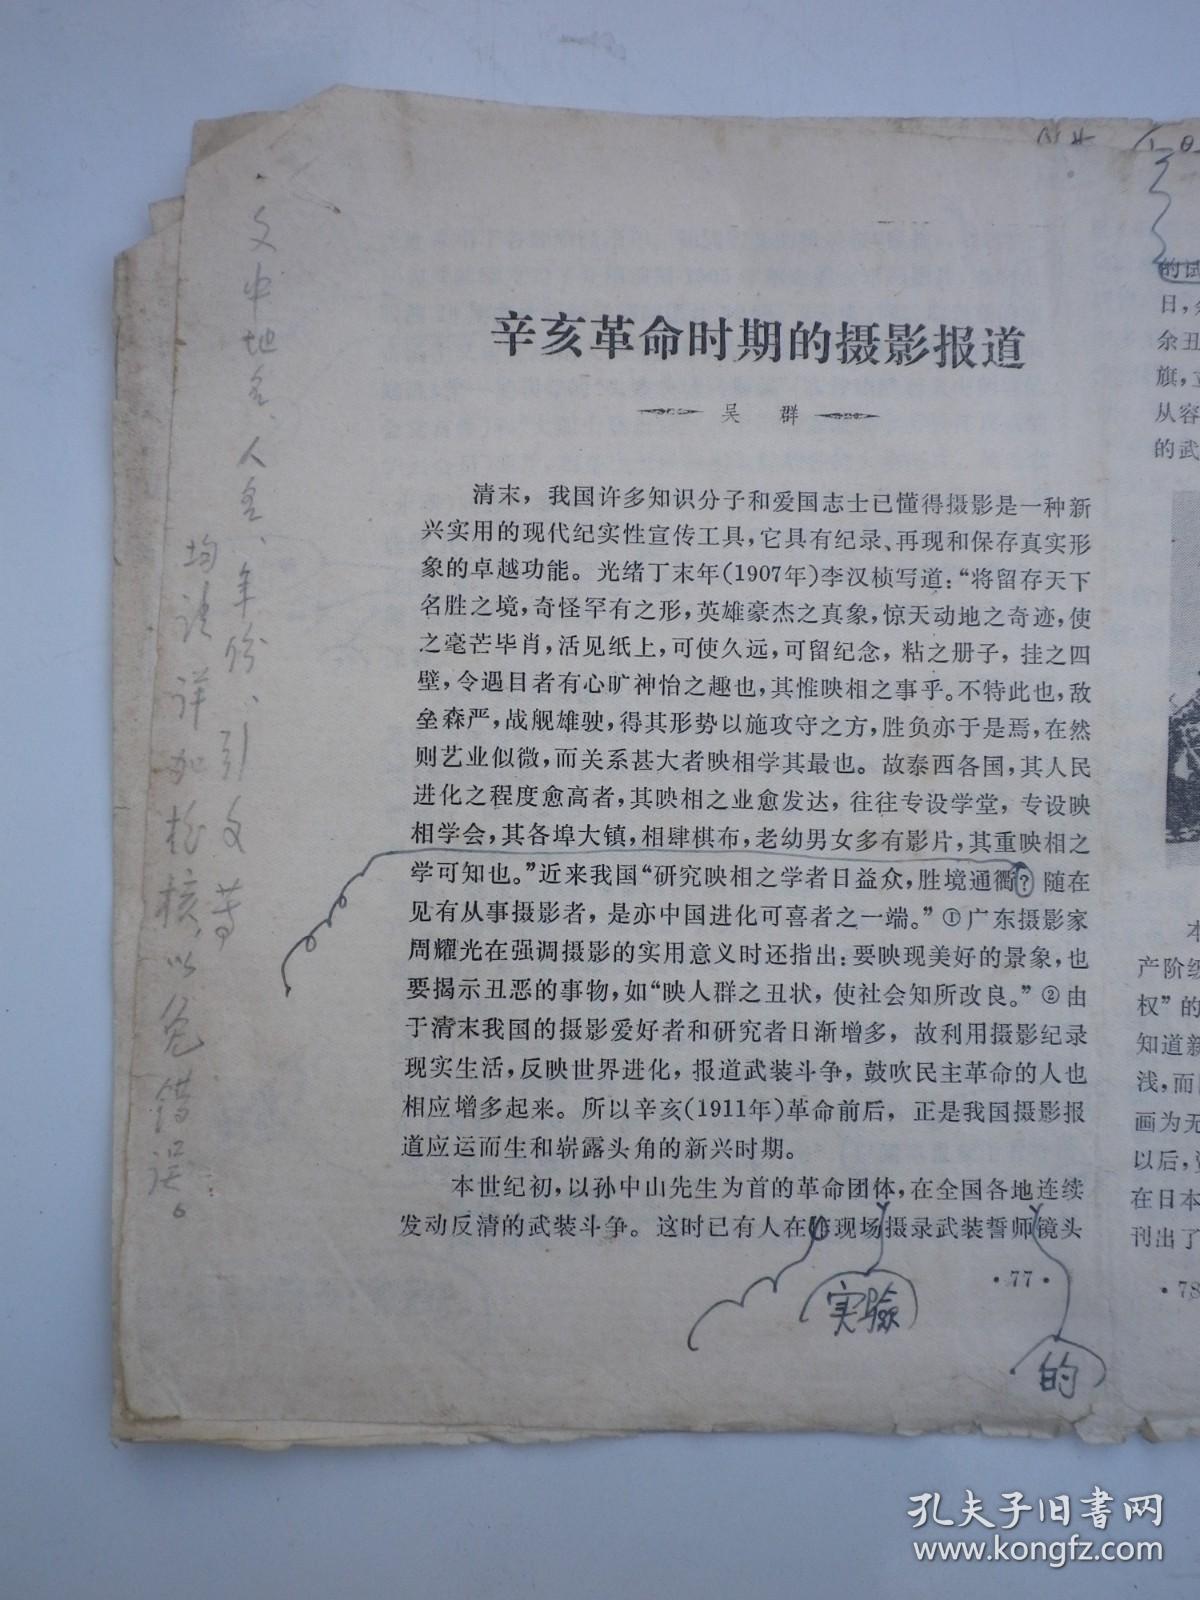 辛亥革命时期的摄影报道
吴 群
清末，我国许多知识分子和爱国志士已懂得摄影是一种新
兴实用的现代纪实性宣传工具，它具有纪录、再现和保存真实形
象的卓越功能。光绪丁末年（1907年）李汉桢写道：“将留存天下
名胜之境，奇怪罕有之形，英雄豪杰之真象，惊天动地之奇迹，使
之毫芒毕肖，活见纸上，可使久远，可留纪念，粘之册子，挂之四
壁，令遇目者有心旷神怡之趣也，其惟映相之事乎。不特此也，敌
垒森严，战舰雄驶，得其形势以施攻守之方，胜负亦于是焉，在然
则艺业似微，而关系甚大者映相学其最也。故泰西各国，其人民
进化之程度愈高者，其映相之业愈发达，往往专设学堂，专设映
相学会，其各埠大镇，相肆棋布，老幼男女多有影片，其重映相之
学可知也。”近来我国“研究映相之学者日益众，胜境通衢？随在
见有从事摄影者，是亦中国进化可喜者之一端。”①广东摄影家
周耀光在强调摄影的实用意义时还指出：要映现美好的景象，也
要揭示丑恶的事物，如“映人群之丑状，使社会知所改良。”②由
于清末我国的摄影爱好者和研究者日渐增多，故利用摄影纪录
现实生活，反映世界进化，报道武装斗争，鼓吹民主革命的人也
相应增多起来。所以辛亥（1911年）革命前后，正是我国摄影报
道应运而生和崭露头角的新兴时期。
本世纪初，以孙中山先生为首的革命团体，在全国各地连续
发动反清的武装斗争。这时已有人在现场摄录武装誓师镜头
实驗
的
·77·
文中地名、人名、年份、引文等
均请详加校核，以免错误。
的试
日，
余丑
旗，立
从容
的武
本
产阶级
权”的
知道新
浅，而
画为无
以后，
在日本
刊出了
·78
孔夫子旧书网
www.kongfz.com